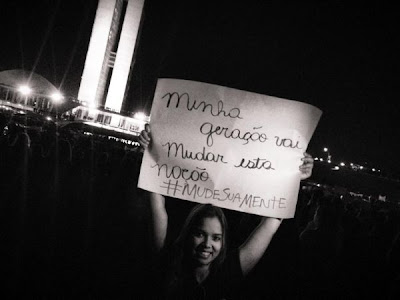 Minha
geração vai
Mudar esta
nação
#MUDESUAMENTE